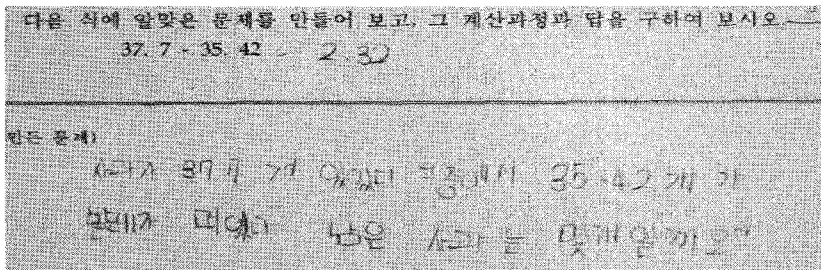 다음 식에 알맞은 문제를 만들어 보고, 그 계산과정과 답을 구하여 보시오.
37. 7 - 35. 42 = 2.32
만든 문제)
사과가 37.7 개 있었다 그중에서 35.42 개 가
벌레가 먹었다 남은 사과 는 몇개 일까요?